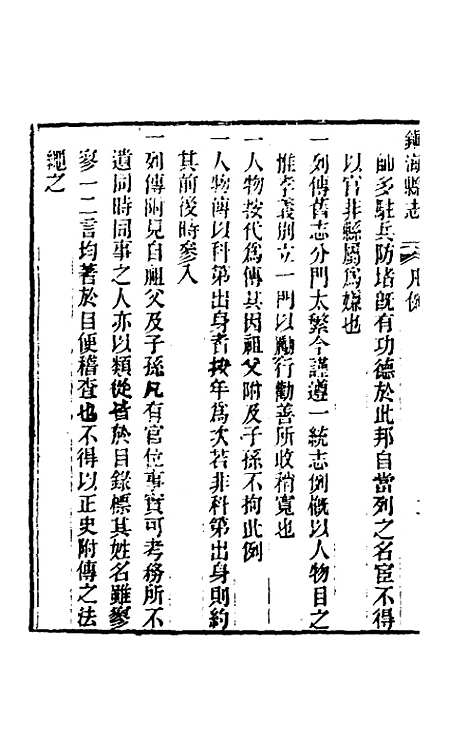 鎮海縣志 凡例
帥多駐兵防堵旣有功德於此邦自當列之名宦不得
以官非縣屬爲嫌也
一列傳舊志分門太繁今謹遵一統志例槪以人物目之
惟孝義別立一門以勵行勸善所收稍寬也
一人物按代爲傳其因祖父附及子孫不拘此例
一人物傳以科第出身者按年爲次若非科第出身則約
其前後時參入
一列傳附見自祖父及子孫凡有官位事實可考務所不
遺同時同事之人亦以類從皆於目錄標其姓名雖寥
寥一二言均著於目便稽查也不得以正史附傳之法
繩之